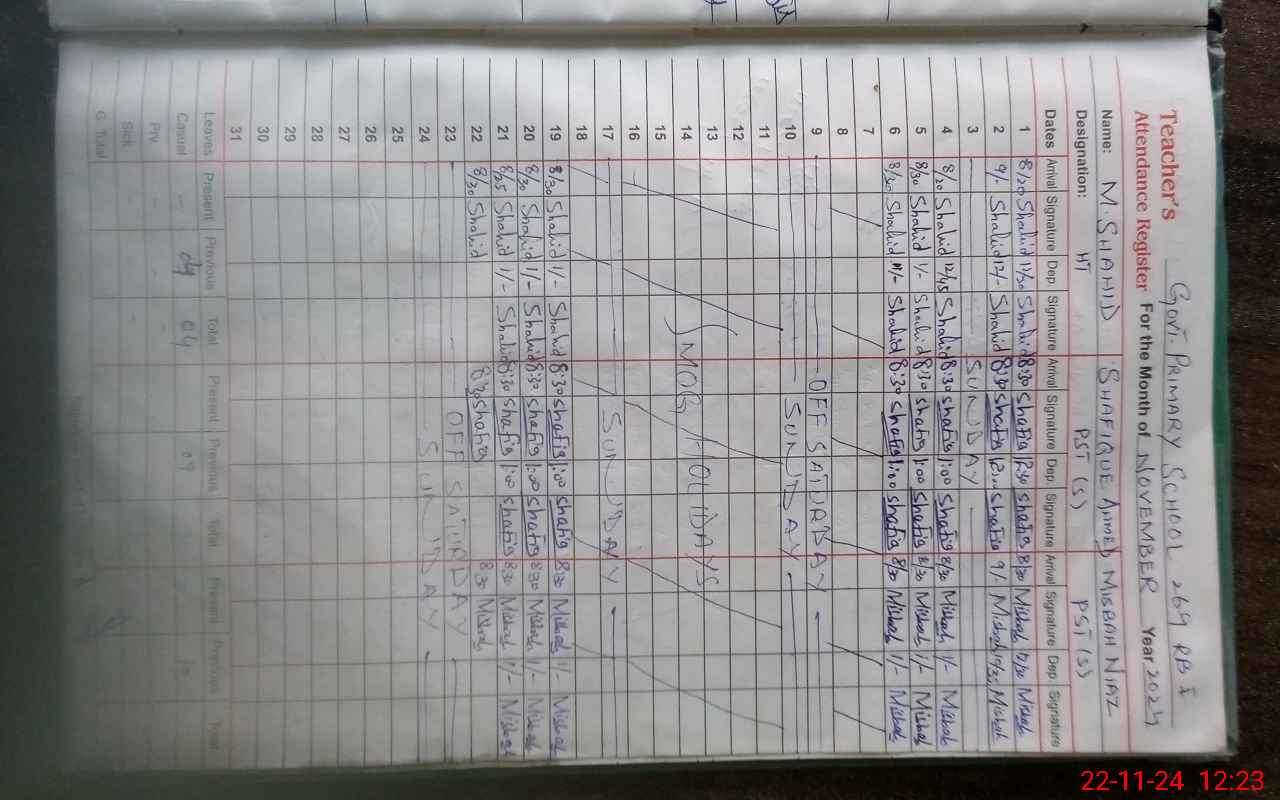 Teacher's GOVT. PRIMARY SCHOOL 269 RB I
Attendance Register For the Month of NOVEMBER Year 2024
Name: M. SHAHID SHAFIQUE AHMED MISBAH NIAZ
Designation: HT PST (S) PST (S)
Dates Arrival Signature Dep. Signature Arrival Signature Dep. Signature Arrival Signature Dep. Signature
1 8/20 Shahid 12/30 Shahid 8:30 Shafiq 12:30 Shafiq 8/30 Misbah 12/30 Misbah
2 9/- Shahid 12/- Shahid 8:30 Shafiq 12:00 Shafiq 9/- Misbah Misbah
3 SUNDAY
4 8/20 Shahid 12/45 Shahid 8:30 Shafiq 1:00 Shafiq 8/30 Misbah 1/- Misbah
5 8/30 Shahid 1/- Shahid Shafiq 1:00 Shafiq 8/30 Misbah 1/- Misbah
6 8/30 Shahid Shahid 8:30 Shafiq 1:00 Shafiq 8/30 Misbah 1/- Misbah
7
8
9 OFF SATURDAY
10 SUNDAY
11
12
13 SMOG HOLIDAYS
14
15
16
17 SUNDAY
18
19 8/30 Shahid 1/- Shahid 8:30 Shafiq 1:00 Shafiq 8/30 Misbah 1/- Misbah
20 8/30 Shahid 1/- Shahid 8:30 Shafiq 1:00 Shafiq 8/30 Misbah 1/- Misbah
21 8/25 Shahid 1/- Shahid 8:30 Shafiq 1:00 Shafiq 8/30 Misbah 1/- Misbah
22 8/30 Shahid 8:30 Shafiq 8/30 Misbah
23 OFF SATURDAY
24 SUNDAY
25
26
27
28
29
30
31
Leaves Present Previous Total Present Previous Total Present Previous Total
Casual 04 04 09
Prv
Sick
G. Total
22-11-24 12:23